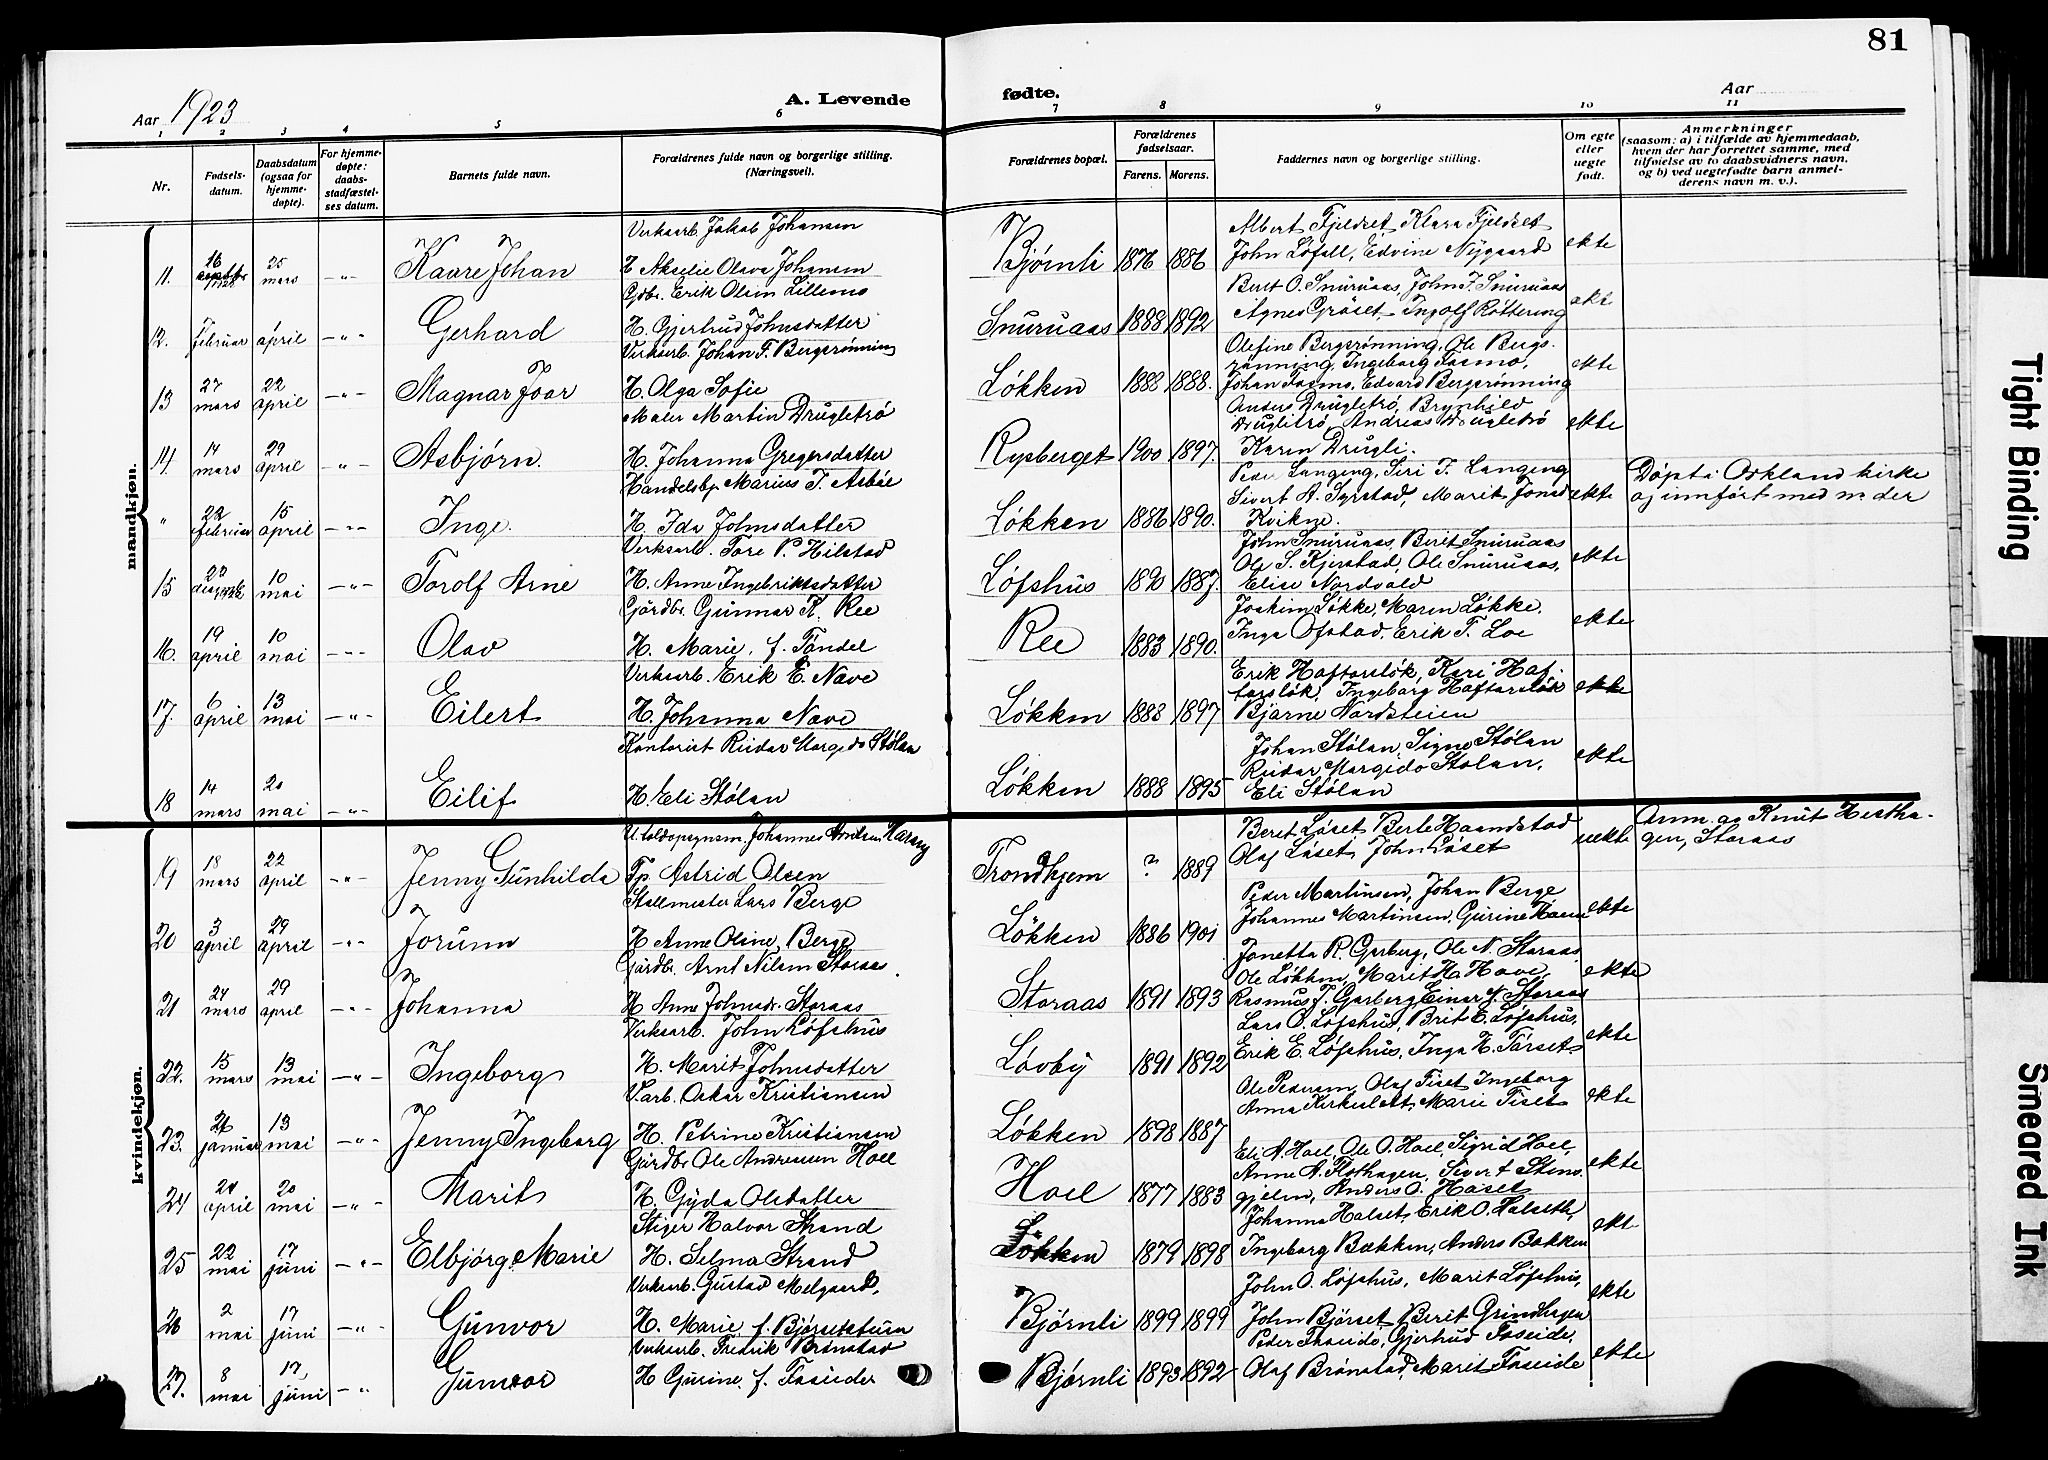 81
Aar 1923
A. Levende
fødte.
Aar
1 2 3 4 5 6 7 8 9 10 11
Nr.
Fødsels-
datum.
Daabsdatum
(ogsaa for
hjemme-
døpte).
For hjemme-
døpte:
daabs-
stadfæstel-
ses datum.
Barnets fulde navn.
Forældrenes fulde navn og borgerlige stilling.
(Næringsvei).
Forældrenes bopæl.
Forældrenes
fødselsaar.
Farens. Morens.
Faddernes navn og borgerlige stilling.
Om egte
eller
uegte
født.
Anmerkninger
(saasom: a) i tilfælde av hjemmedaab,
hvem der har forrettet samme, med
tilføielse av to daabsvidners navn,
og b) ved uegtefødte barn anmel-
derens navn m. v.).
mandkjøn.
Verksarb. Jakob Johansen
Albert Fjeldset, Klara Fjeldset
11. 16 1922 25 mars -"- Kaare Johan H. Akselie Olava Johansen Bjørnli 1876 1886 John Løfall, Edvine Nygaard ekte
Gdbr. Erik Olsen Lillemo
Beret O. Snuruaas, John F. Snuruaas
12. 7 februar april -"- Gerhard H. Gjertrud Johnsdatter Snuruaas 1888 1892 Agnes Grøset, Ingolf Røttering ekte
Verksarb. Johan F. Bergsrønning
Olefine Bergsrønning, Ole Bergs-
rønning, Ingeborg Fosmo,
13 27 mars 22 april -"- Magnar Joar H. Olga Sofie Løkken 1888 1888. Johan Fosmo, Edvard Bergsrønning ekte
Maler Martin Drugletrø
Anders Drugletrø, Brynhild
Drugletrø, Andreas Drugletrø
14. 14 mars 29 april -"- Asbjørn. H. Johanna Gregersdatter Rypberget 1900 1897. Karen Drugli. ekte
Handelsbp. Marius T. Asbøl
Peder Langeng, Siri T. Langeng
Sivert A. Syrstad, Marit Jonsd
" 22 februar 15 april -"- Inge. H. Ida Johnsdatter Løkken 1886 1890. Kvikne. ekte
Døpt i Orkland kirke
og innført med nr. der
Verksarb. Tore P. Hilstad
John Snuruaas, Beret Snuruaas
Ole S. Kjerstad, Ole Snuruaas,
15 22 10 mai -"- Torolf Arne H. Anne Ingebriktsdatter Løfshus 1890 1887. Elise Nordvald ekte
Gårdbr. Gunnar K. Ree
Joakim Løkke, Maren Løkke.
16. 19 april 10 mai -"- Olav H. Marie, f. Tøndel Ree 1883 1890. Inga Ofstad, Erik T. Loe ekte
Verksarb. Erik E. Nave
Erik Haftorsløk, Kari Haf-
torsløk, Ingeborg Haftorsløk
17. 6 april 13 mai -"- Eilert H. Johanna Nave Løkken 1888 1897 Bjarne Nordsteien ekte
Kontorist Reidar Margido Stølan
Johan Stølan, Signe Stølan
Reidar Margido Stølan,
18 14 mars 20 mai -"- Eilif H. Eli Stølan Løkken 1888 1895 Eli Stølan ekte
kvindekjøn.
Johannes Arntsen
Beret Løset, Berte Haandstad
19 18 mars 22 april -"- Jenny Gunhilda Tp. Astrid Olsen Trondhjem ? 1889 Olaf Løset, John Løset uekte
Anm. av Knut Hestha-
gen, Storaas
Stallmester Lars Berge
Peder Martinsen, Johan Berge
20 3 april 29 april -"- Jorunn H. Anne Oline Berge Løkken 1886 1901 Johannes Martinsen, Gurine ekte
Gårdbr. Arnt Nilsen Storaas
Jonetta R. Garberg, Ole N. Storaas
Ole Løkken, Marit H. Hove,
21 27 mars 29 april -"- Johanna H. Anne Johnsdr. Storaas Storaas 1891 1893 Rasmus T. Garberg, Einar Storaas ekte
Verksarb. John Løfshus
Lars O. Løfshus, Brit E. Løfshus,
22. 15 mars 13 mai -"- Ingeborg H. Marit Johnsdatter Løvby 1891 1892 Erik E. Løfshus, Inga H. Tørset ekte
V.arb. Oskar Kristiansen
Ole Pedersen, Olaf Fiset, Ingeborg
23. januar 13 mai -"- Jenny Ingeborg H. Petrine Kristiansen Løkken 1898 1887 Anna Kirkeslett, Marie Fiset ekte
Gårdbr. Ole Andreassen Hoel
Eli A. Hoel, Ole O. Hoel, Sigrid Hoel,
Anne A. Flothagen, Sivert Stens-
24 april 20 mai -"- Marit H. Gyda Olsdatter Hoel 1877 1883 gjelen, Anders O. Høset ekte
Stiger Halvor Strand
Johanna Halset, Erik O. Halseth,
25 22 mai 17 juni -"- Elbjørg Marie H. Selma Strand Løkken 1879 1898 Ingeborg Bakken, Anders Bakken ekte
Verksarb. Gustav Melgaard,
John O. Løfshus, Marit Løfshus,
26 2 mai 17 juni -"- Gunvor H. Marie, f. Bjørsetstuen Bjørnli 1899 1899 John Bjørset, Berit Grindhagen ekte
Verksarb. Fredrik Brønstad
Peder Faseide, Gjertrud Faseide,
27. 8 mai 17 juni -"- Gunvor H. Gurine, f. Faseide Bjørnli 1893 1892 Olaf Brønstad, Marit Faseide ekte
Tight Binding
Smeared Ink